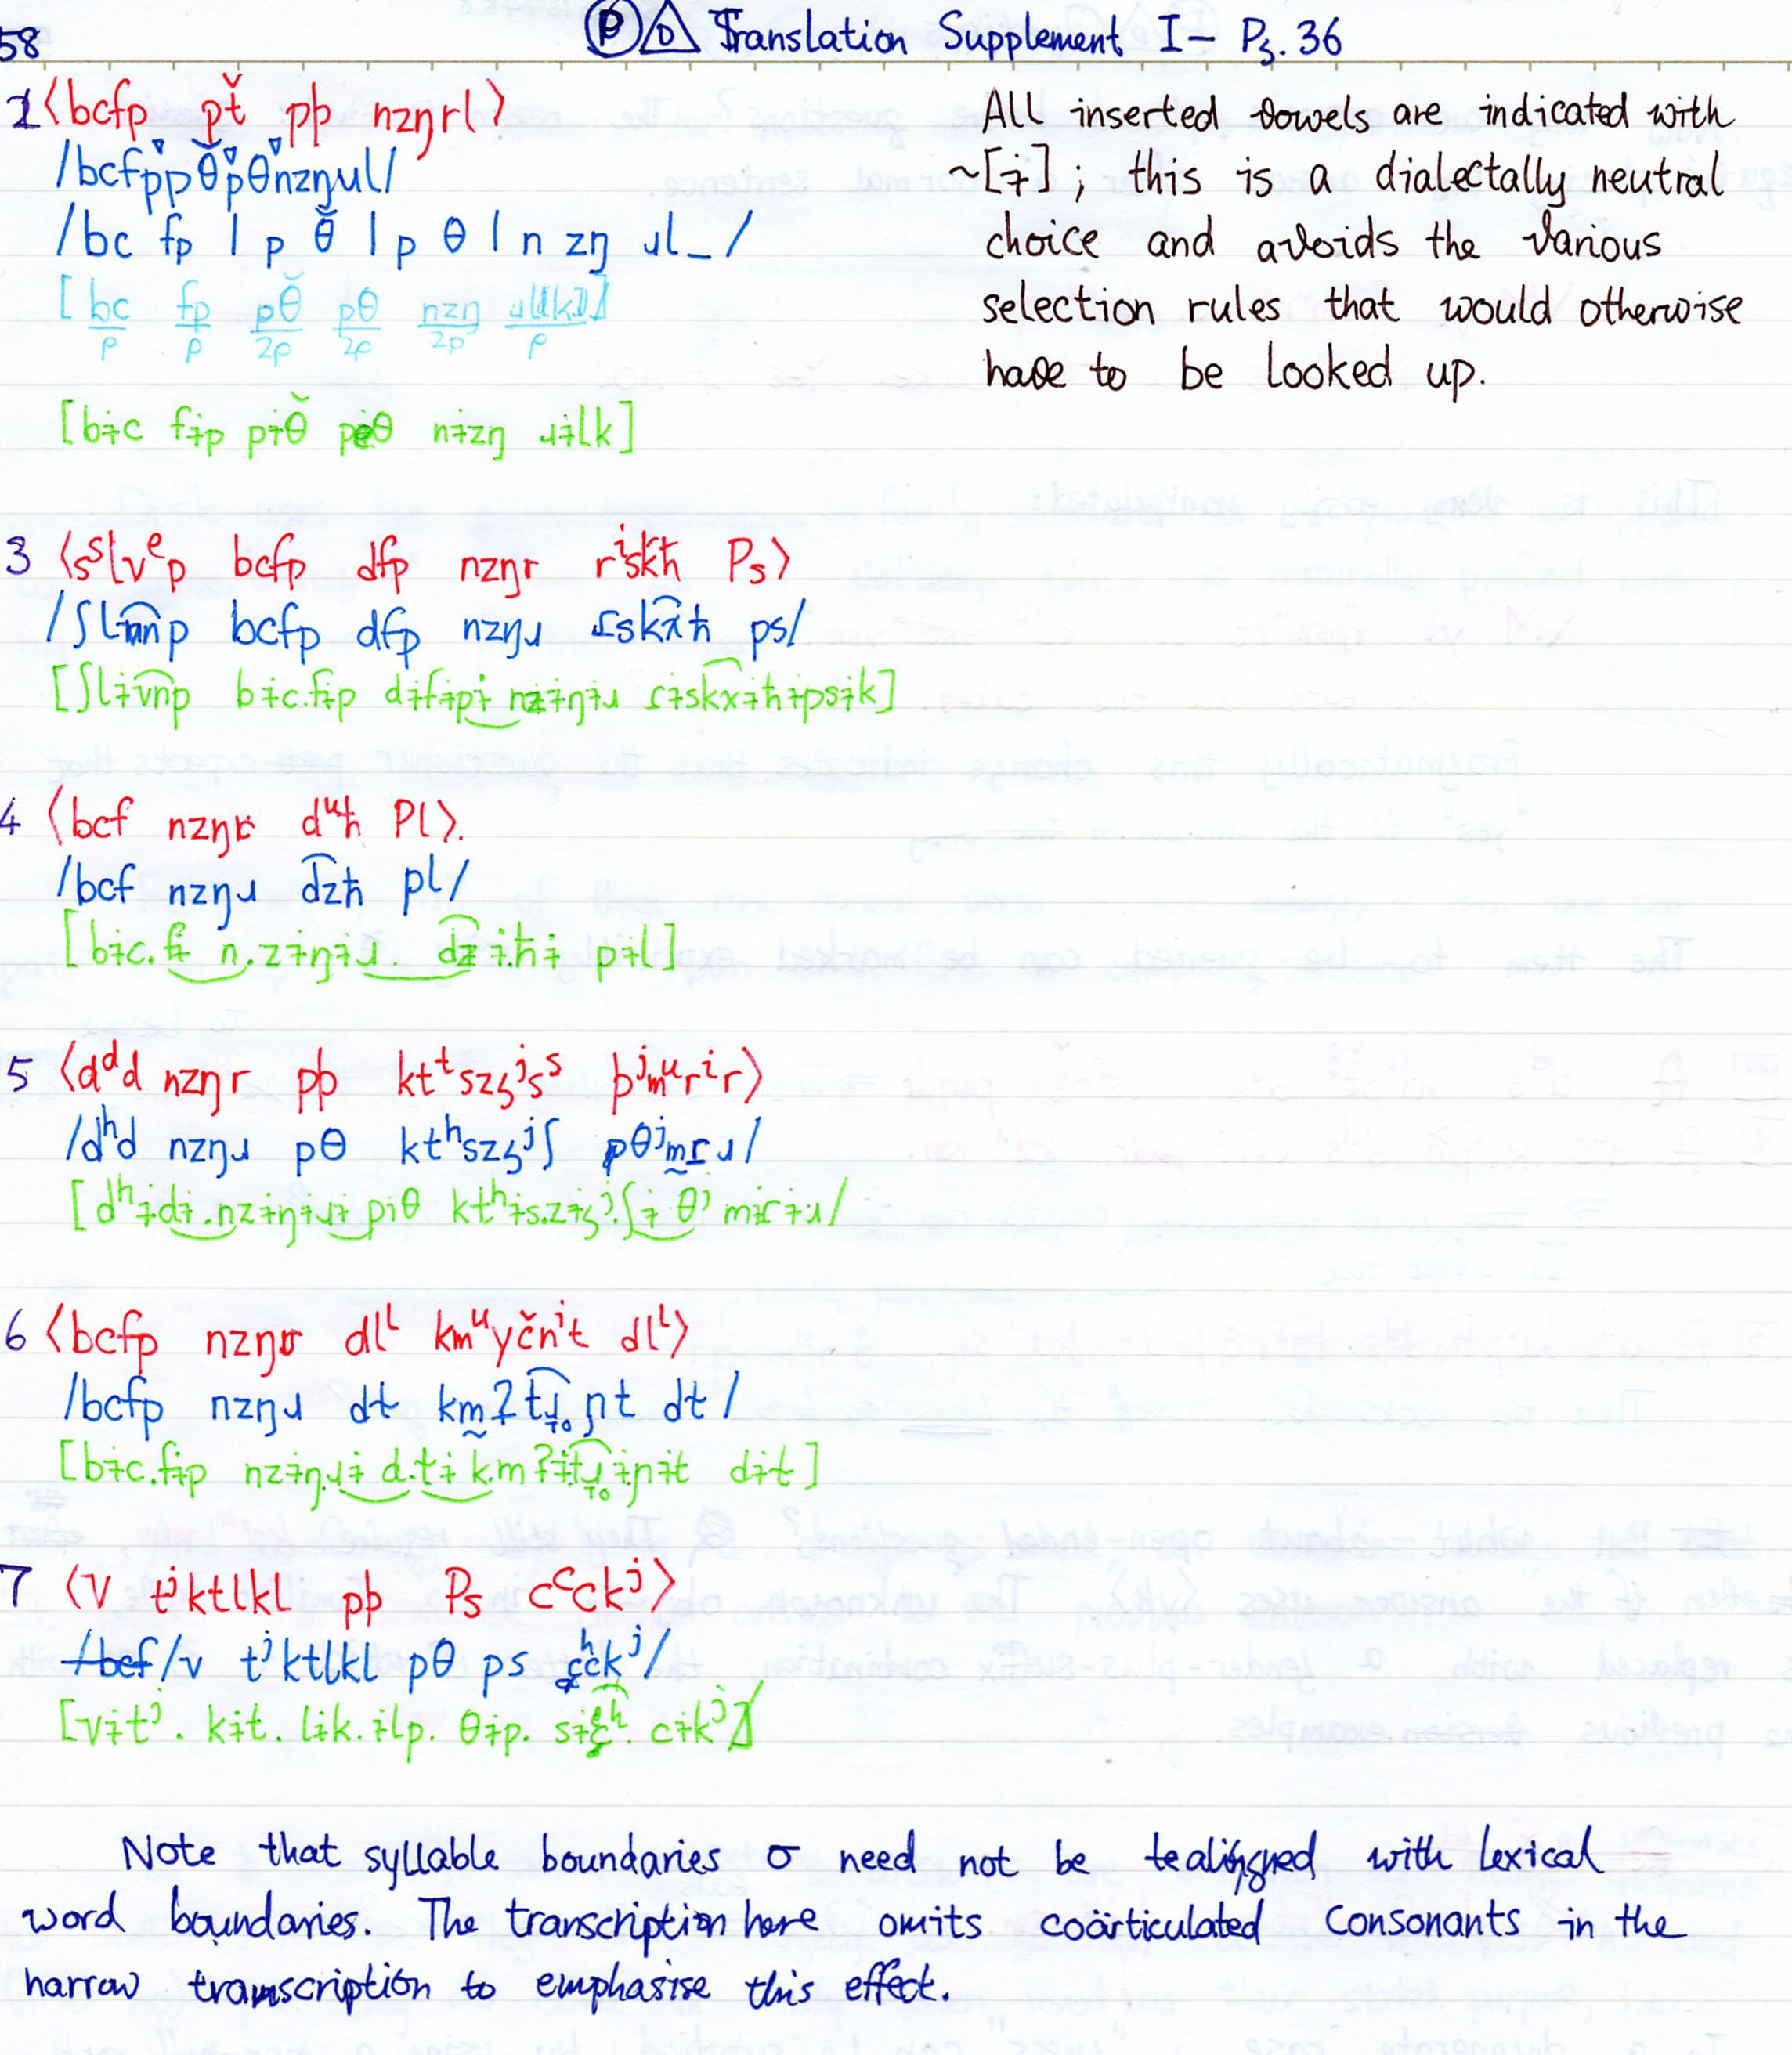 58
Ⓟ Translation Supplement I - Pg. 36
1 ⟨bcfp pť pþ nzŋrl⟩
/bcfppθ̌pθnzŋɹl/
/bc fp | p θ̌ | p θ | n zŋ ɹl_/
[bɨc fɨp pɨθ̌ pɨθ nɨzŋ ɹɨlk]
All inserted vowels are indicated with
~[ɨ]; this is a dialectally neutral
choice and avoids the various
selection rules that would otherwise
have to be looked up.
3 ⟨sˢlvᵉp bcfp dfp nzŋr rⁱskħ Ps⟩
bcfp dfp nzŋɹ ɾsk͡xħ ps/
4 ⟨bcf nzŋr dᵘħ Pl⟩.
/bcf nzŋɹ d͡zħ pl/
[bɨc.fɨ n.zɨŋɨɹ d͡zɨħɨ pɨl]
5 ⟨dᵈd nzŋr pþ ktᵗszʒʲsˢ þʲmᵘrⁱr⟩
/dʰd nzŋɹ pθ ktʰszʒʲʃ pθʲm̰ɾɹ/
[dʰɨdɨ.nzɨŋɨɹɨ piθ ktʰɨs.zɨʒʲ.ʃɨ θʲ mɨɾɨɹ/
6 ⟨bcfp nzŋr dlᴸ kmᵘyčnⁱt dlᴸ⟩
/bcfp nzŋɹ dɬ
7 ⟨V tʲktlkl pþ Ps cᶜckʲ⟩
/v tʲktlkl pθ ps
[vɨtʲ. kɨt. lɨk. ɨlp. θɨp. cɨkʲ]
Note that syllable boundaries σ need not be realigned with lexical
word boundaries. The transcription here omits coärticulated consonants in the
narrow transcription to emphasise this effect.